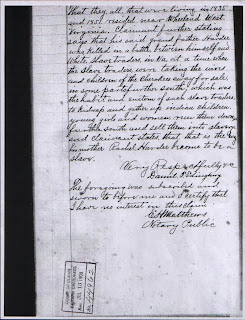 that they all, that were living in 1835
and 1851 resided near Wheeland West
Virginia. Claimant further stating
says that his said grandfather Hansler
was killed in a battle between himself and
White Slave traders in Va at a time when
the Slave traders were taking the wives
and children of the Cherokee away for sale
in some parts of other south, which was
the habit and custom of such slave traders
to kidnap and gather up indian children
young girls and women run them down
further south and sell them into slavery
and claimant states that that is the way
his mother Rachel Hansler become to be a
slave.
Very Respectfully &c
Daniel
The foregoing was subscribed and
sworn to before me and I certify that
I have no interest in this claim
E H Matthews
Notary Public